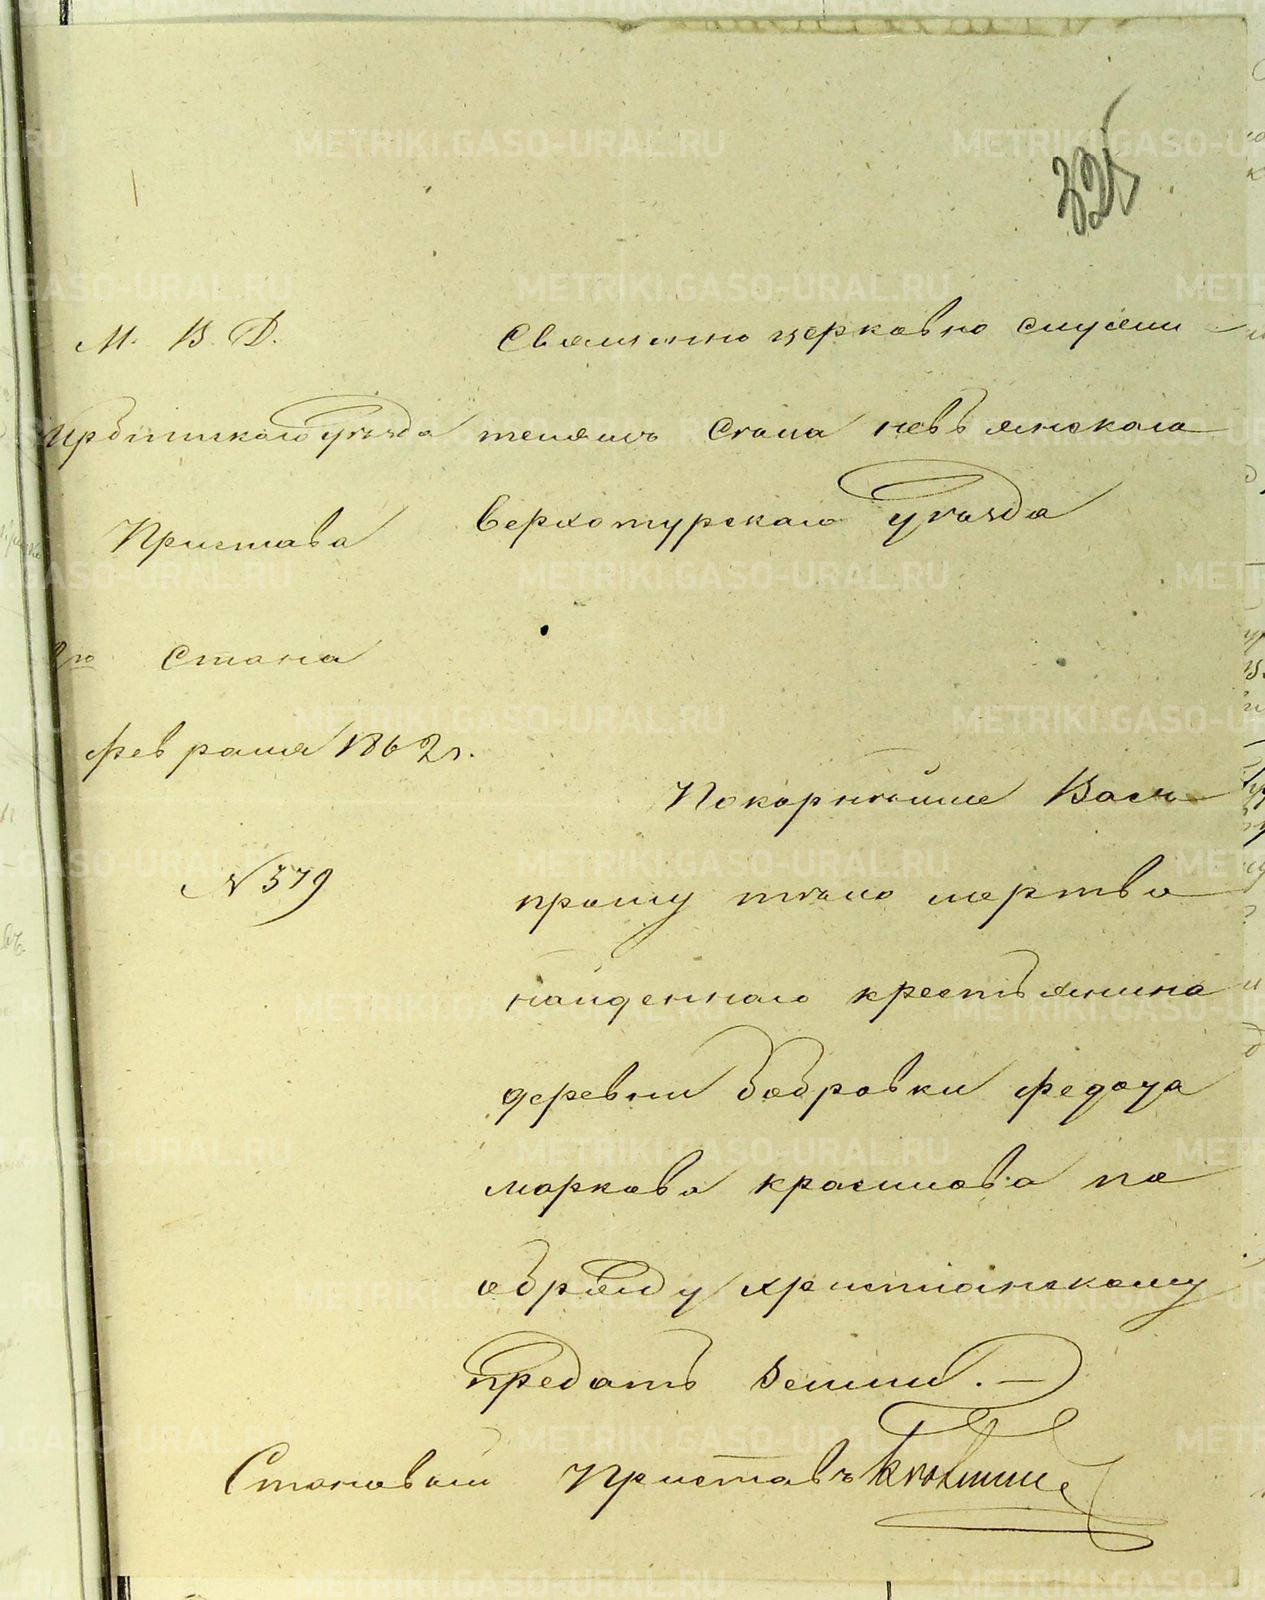 325
М. В. Д.
Ирбитскаго Уѣзда
Пристава
2го Стана
февраля 1862 г.
№ 379
Священно церковно служи-
телямъ Села невьянскаго
Верхотурскаго Уѣзда
Покорнѣйше Васъ
прошу тѣло мертво
найденнаго крестьянина
деревни бобровки федота
маркова красилова по
обряду христианскому
предать Земли. —
Становой Приставъ
METRIKI.GASO-URAL.RU